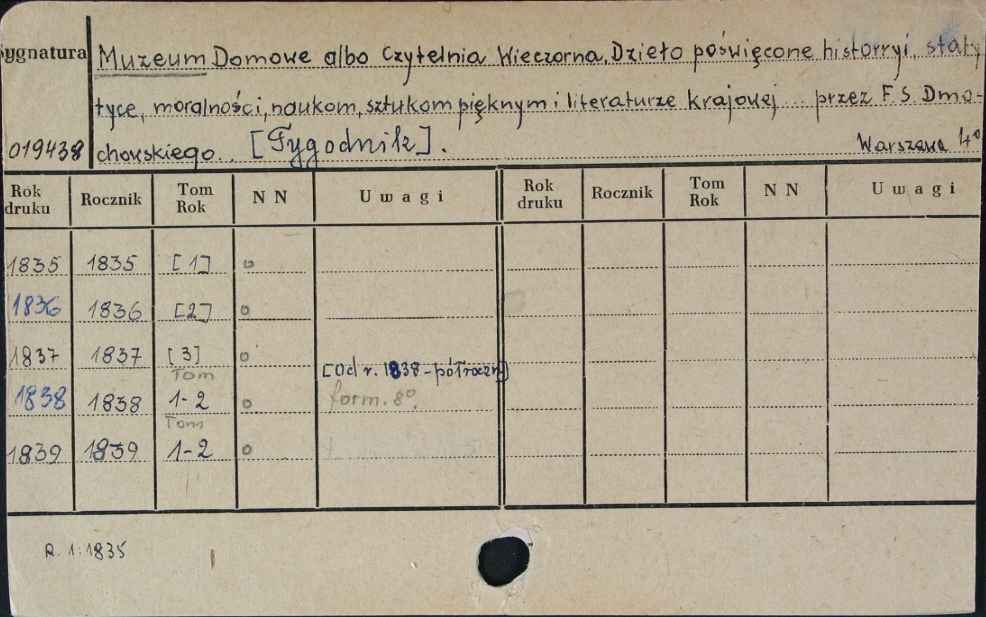 Sygnatura Muzeum Domowe albo Czytelnia Wieczorna, Dzieło poświęcone historryi, staty
tyce, moralności, naukom, sztukom pięknym i literaturze krajowej ... przez F. S. Dmo-
019438 chowskiego... [Tygodnik]. Warszawa 4°
Rok druku Rocznik Tom Rok N N Uwagi Rok druku Rocznik Tom Rok N N Uwagi
1835 1835 [1] o
1836 1836 [2] o
1837 1837 [3] o
Tom [Od r. 1838-półroczn]
1838 1838 1-2 o form. 8°.
Tom
1839 1839 1-2 o
R. 1: 1835